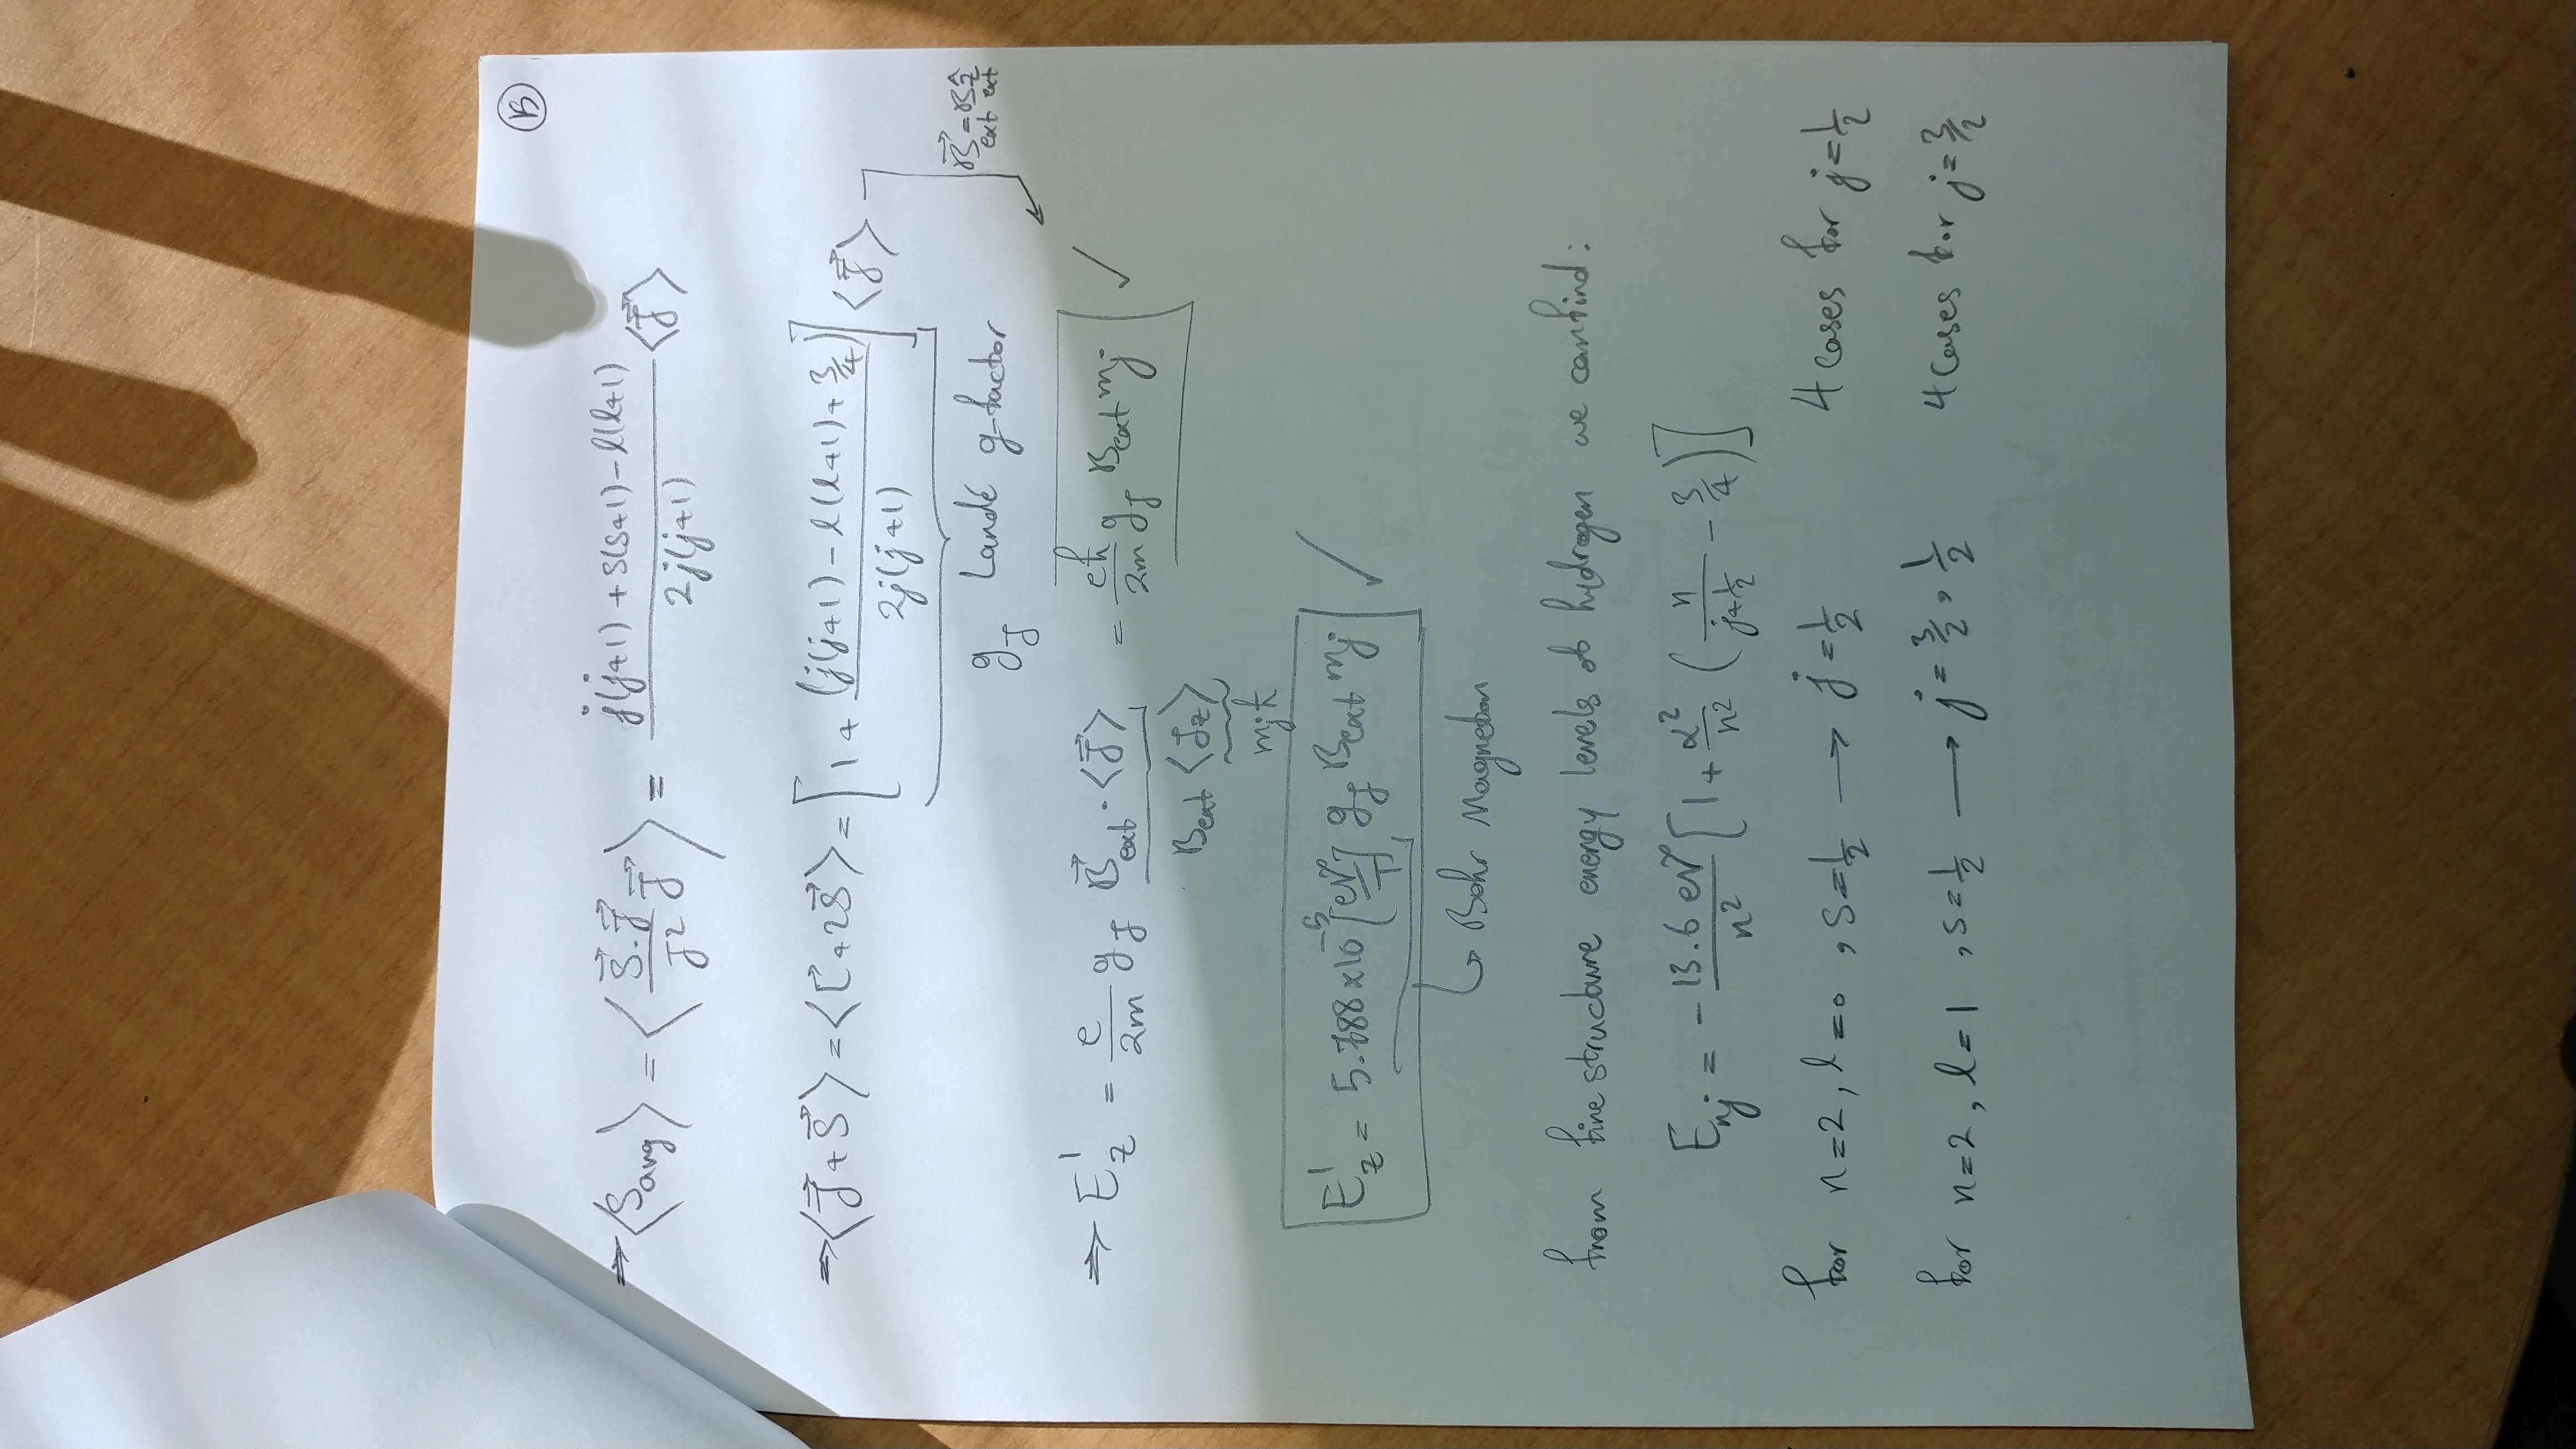 15
⇒ ⟨S_avg⟩ = ⟨ (S⃗.J⃗ / J²) J⃗ ⟩ = (j(j+1) + s(s+1) - l(l+1)) / (2j(j+1)) ⟨J⃗⟩
⇒ ⟨J⃗ + S⃗⟩ = ⟨L⃗ + 2S⃗⟩ = [1 + (j(j+1) - l(l+1) + 3/4) / (2j(j+1))] ⟨J⃗⟩
g_J Landé g-factor
B⃗_ext = B_ext ẑ
⇒ E_z^1 = e/2m g_J B⃗_ext · ⟨J⃗⟩ = eħ/2m g_J B_ext m_j ✓
B_ext ⟨J_z⟩
m_j ħ
E_z^1 = 5.788 × 10^-5 [eV/T] g_J B_ext m_j ✓
↳ Bohr Magneton
from fine structure energy levels of hydrogen we can find:
E_nj = - 13.6 eV / n² [1 + α²/n² (n / (j+1/2) - 3/4)]
for n=2, l=0, s=1/2 → j=1/2 4 cases for j=1/2
for n=2, l=1, s=1/2 → j=3/2, 1/2 4 cases for j=3/2